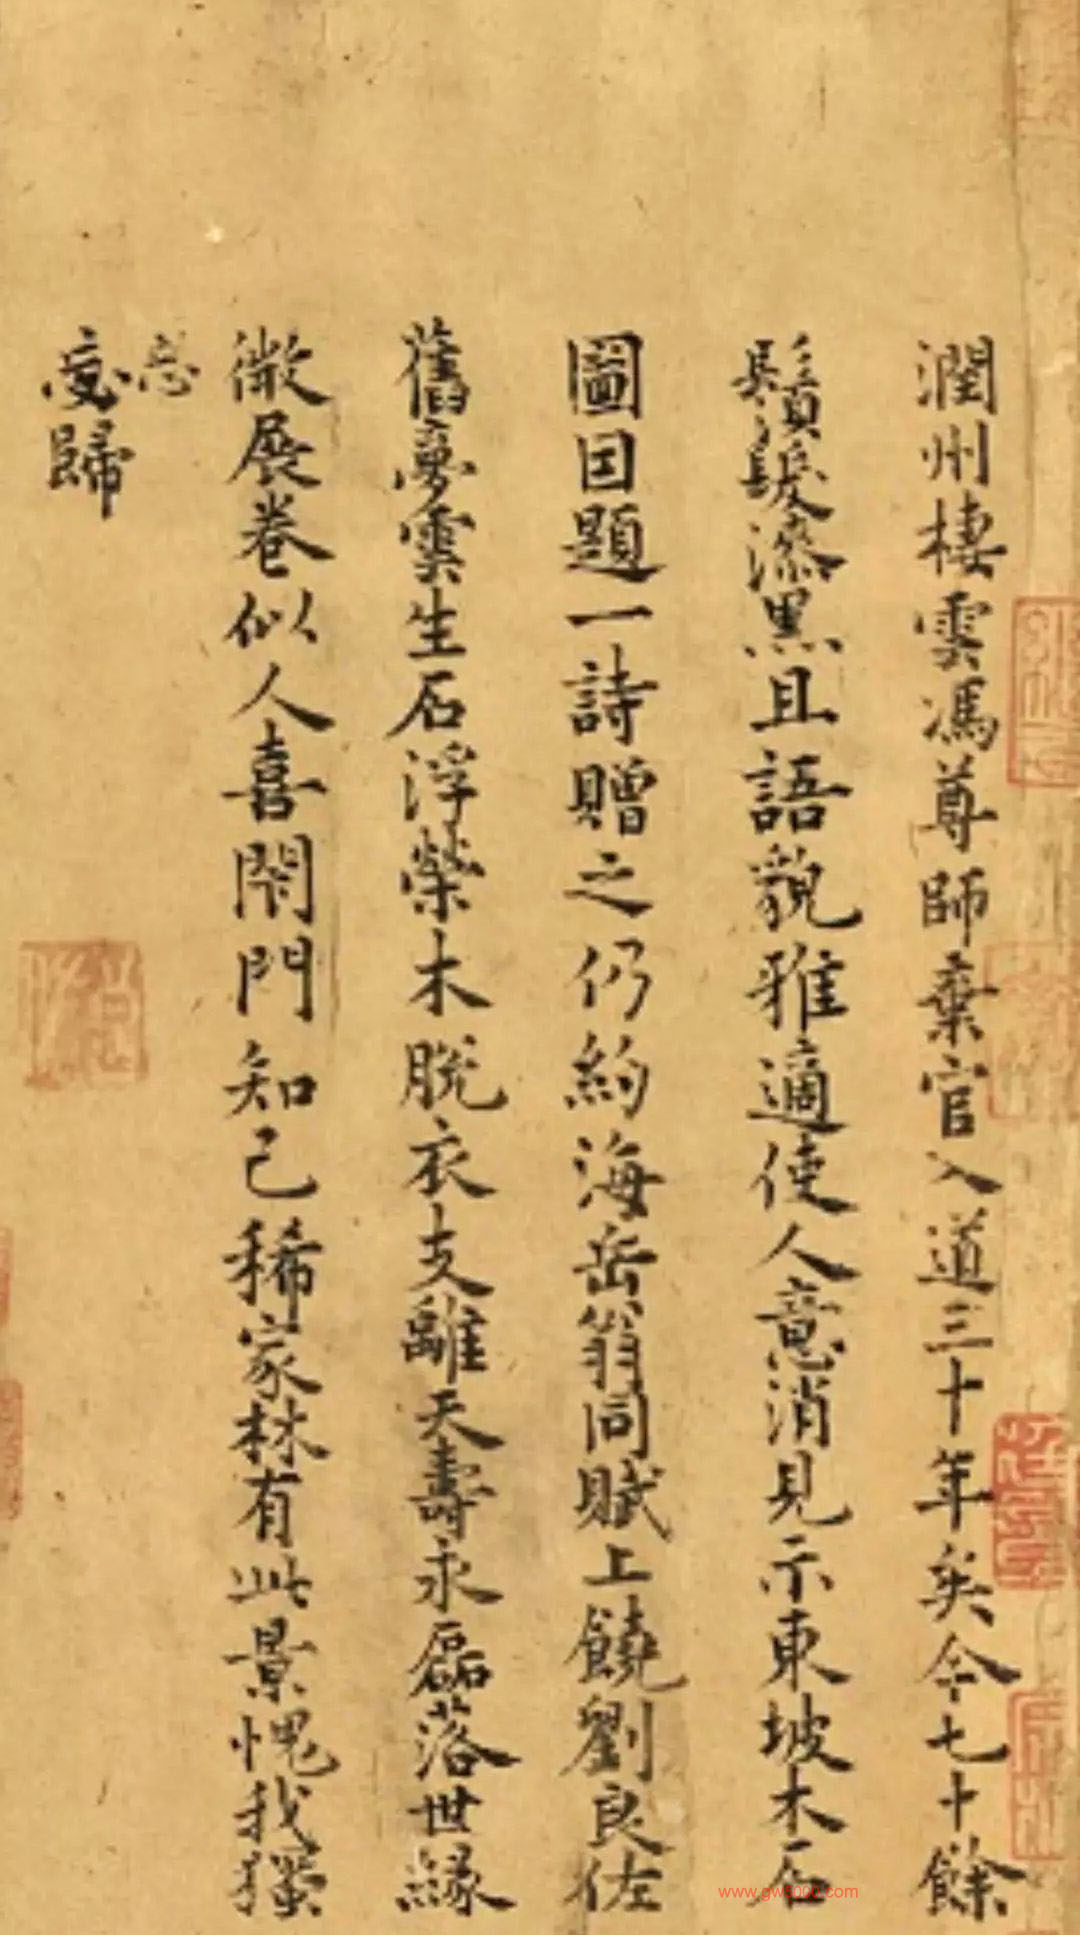 潤州棲雲馮尊師棄官入道三十年矣今七十餘
鬚髮漆黑且語貌雅適使人意消見示東坡木石
圖因題一詩贈之仍約海岳翁同賦上饒劉良佐
舊夢雲生石浮榮木脫衣支離天壽永磊落世緣
微展卷似人喜閉門知己稀家林有此景愧我獨
忘
歸
www.gw5000.com